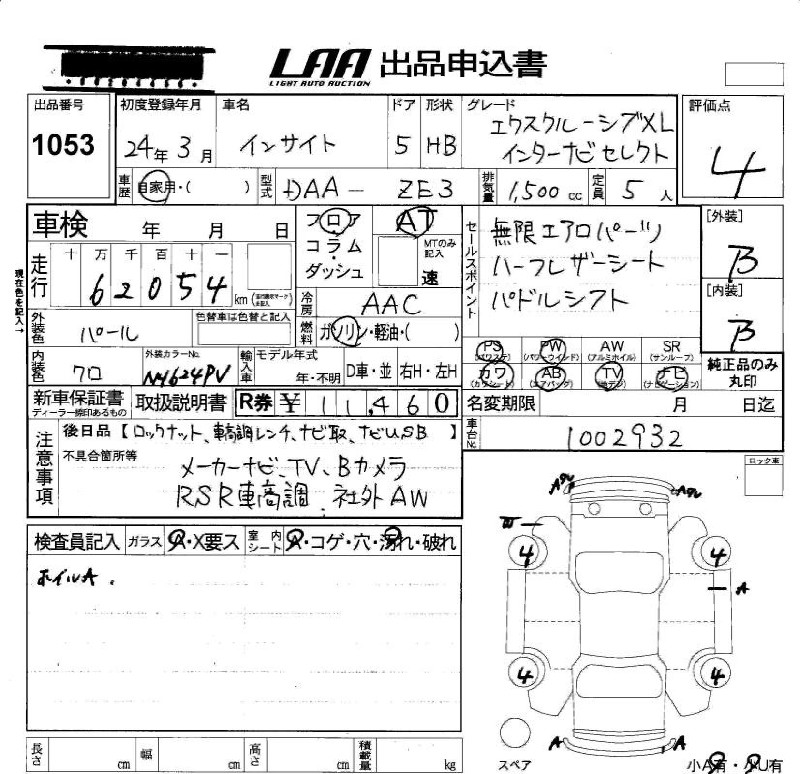 LAA 出品申込書
LIGHT AUTO AUCTION
出品番号
1053
初度登録年月
24年 3月
車名
インサイト
ドア
5
形状
HB
グレード
エクスクルーシブXL
インターナビセレクト
評価点
4
車歴
自家用・( )
型式
DAA- ZE3
排気量
1,500 cc
定員
5 人
車検 年 月 日
フロア
コラム・
ダッシュ
AT
MTのみ記入
速
セールスポイント
無限エアロパーツ
ハーフレザーシート
パドルシフト
[外装]
B
[内装]
B
現在色を記入→
走行
十 万 千 百 十 一
6 2 0 5 4 km
冷房
AAC
燃料
ガソリン・軽油・( )
外装色
パール
色替車は色替と記入
PS
(パワステ)
PW
(パワーウインド)
AW
(アルミホイル)
SR
(サンルーフ)
カワ
(カワシート)
AB
(エアバッグ)
TV
(地デジ)
ナビ
(ナビゲーション)
純正品のみ
丸印
内装色
クロ
外装カラーNo.
NH624PV
輸入車
モデル年式
年・不明
D車・並
右H・左H
新車保証書
ディーラー捺印あるもの
取扱説明書
R券 ¥ 11,460
名変期限 月 日迄
車台No.
1002932
注意事項
後日品【ロックナット、車高調レンチ、ナビ取、ナビUSB】
不具合箇所等
メーカーナビ、TV、Bカメラ
RSR車高調、社外AW
ロック車
検査員記入
ガラス
A・X要ス
室内シート
A・コゲ・穴・汚れ・破れ
ホイルA.
4
4
A
4
4
A
A
スペア
小A有・小U有
長さ cm
幅 cm
高さ cm
積載量 kg